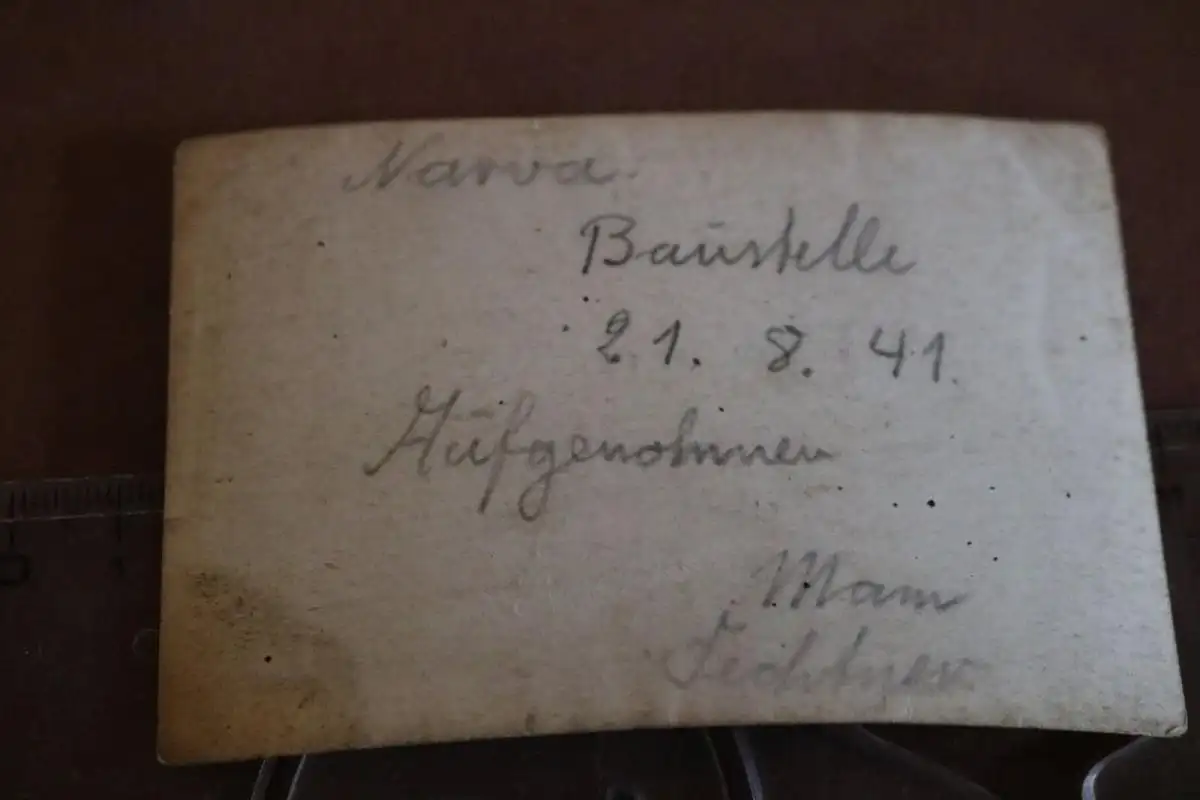 Narva.
Baustelle
21. 8. 41.
Aufgenommen
Mam
Fechtner